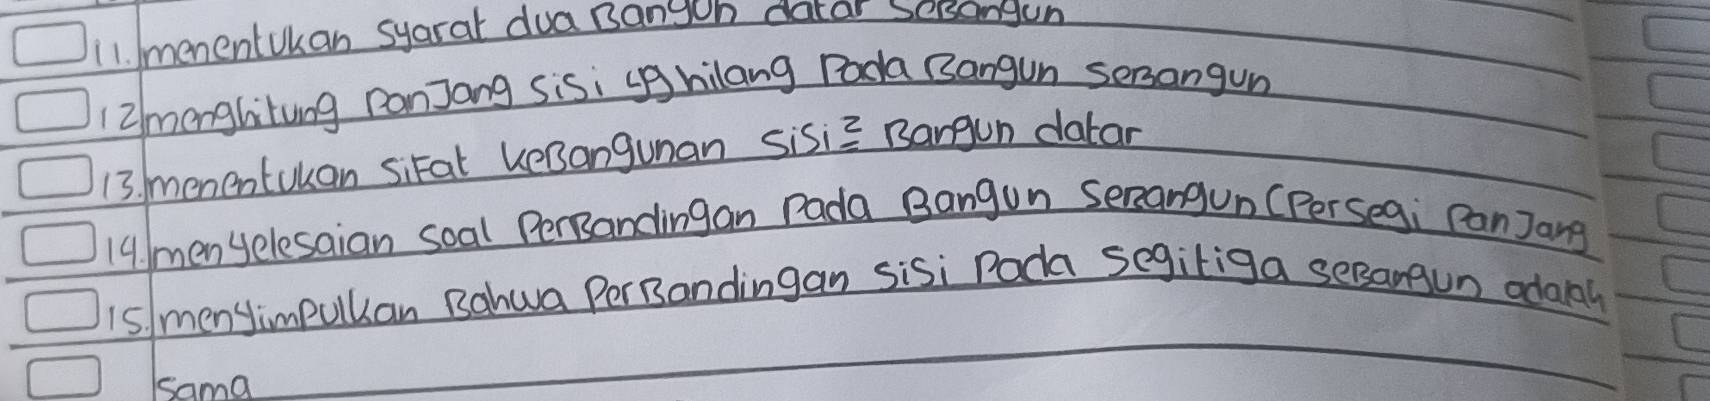 11. menentukan syarat dua Bangun datar seBangun
12 menghitung panJang sisi yg hilang Pada Bangun seBangun
13. menentukan sifat keBangunan sisi² Bangun datar
14. menyelesaian soal PerBandingan Pada Bangun seBangun (Persegi PanJang
15. menyimpulkan Bahwa PerBandingan sisi Pada segitiga seBangun adalah
sama